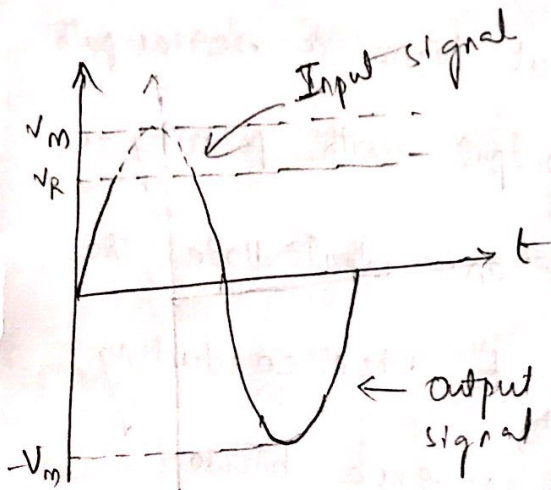 Input signal
Vm
VR
t
output
signal
-Vm